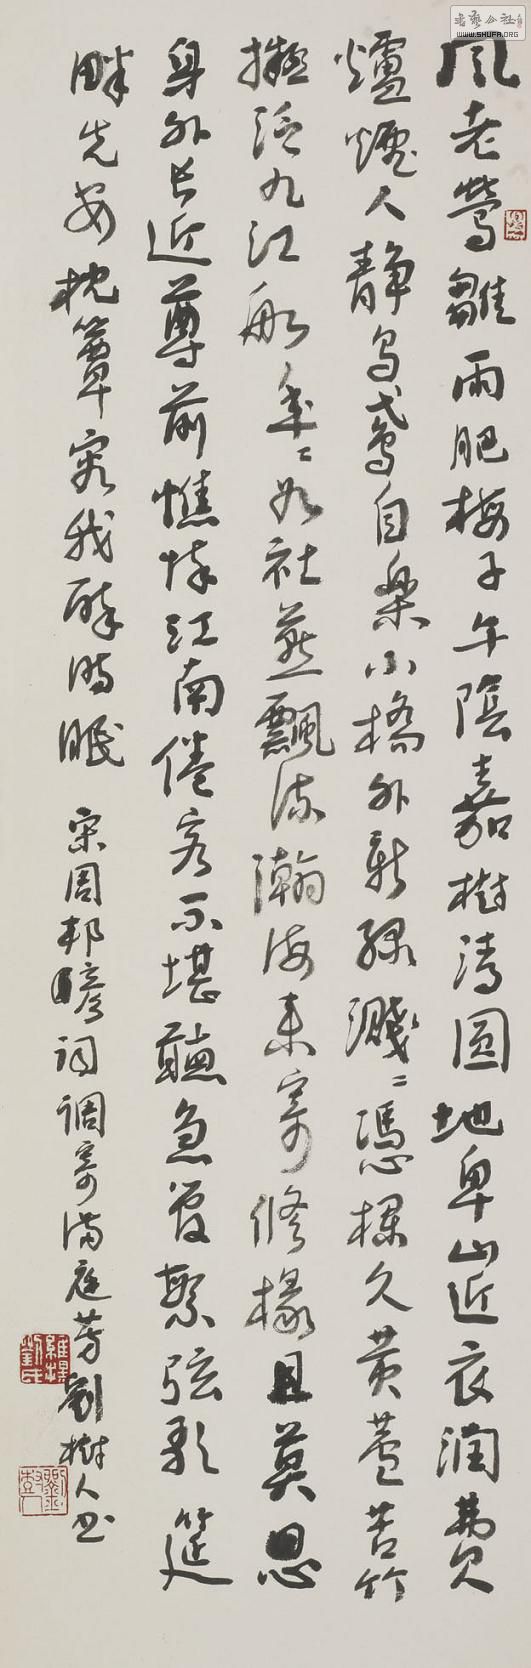 书艺公社
WWW.SHUFA.ORG
風老鶯雛雨肥梅子午陰嘉樹清圓地卑山近衣潤費
爐煙人靜烏鳶自樂小橋外新綠濺〻憑欄久黃蘆苦竹
擬泛九江船年〻如社燕飄流瀚海來寄修椽且莫思
身外長近尊前憔悴江南倦客不堪聽急管繁弦歌筵
畔先安枕簟容我醉時眠 宋周邦彥詞調寄滿庭芳劉樹人書